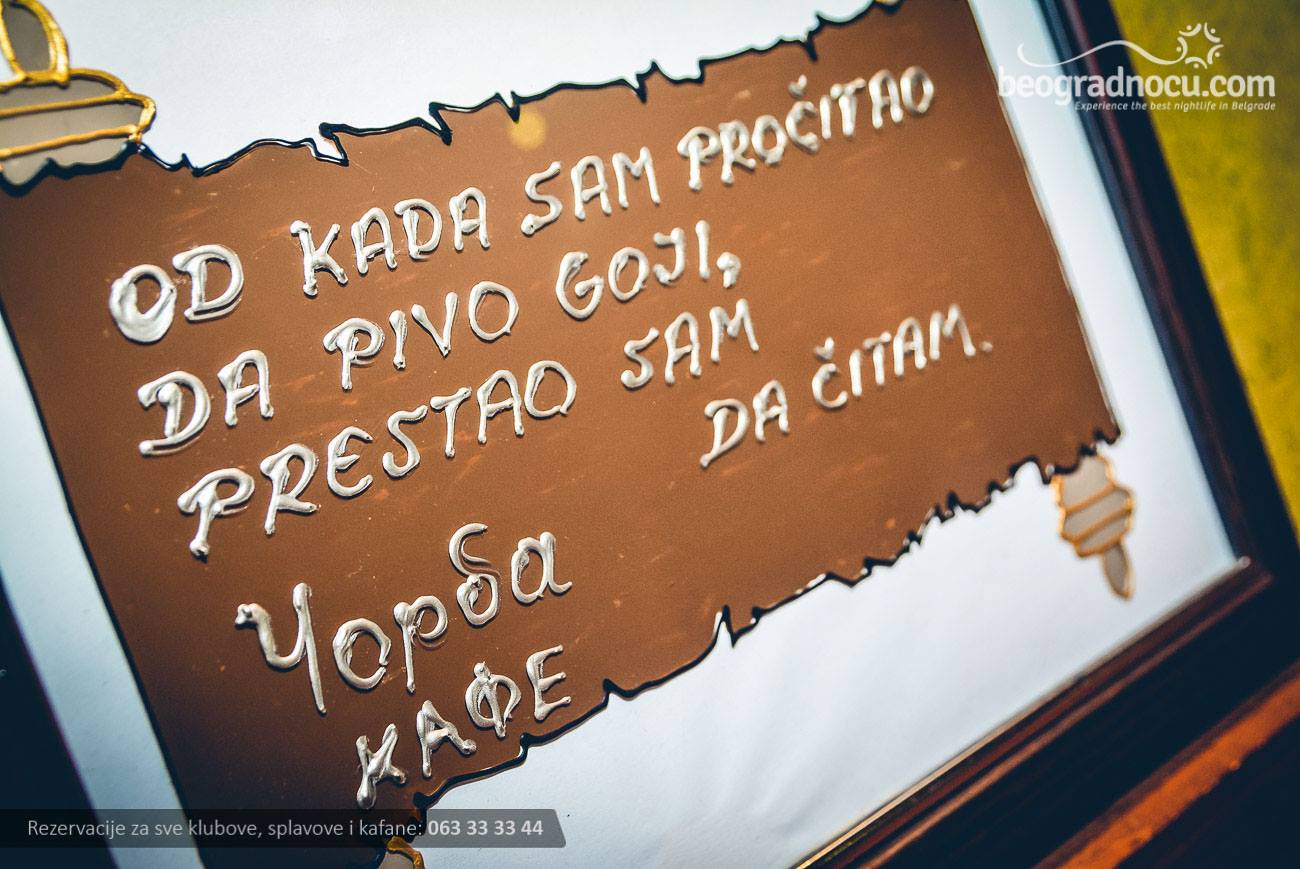 beogradnocu.com
Experience the best nightlife in Belgrade
OD KADA SAM PROČITAO
DA PIVO GOJI,
PRESTAO SAM
DA ČITAM.
Чорба
КАФЕ
Rezervacije za sve klubove, splavove i kafane: 063 33 33 44